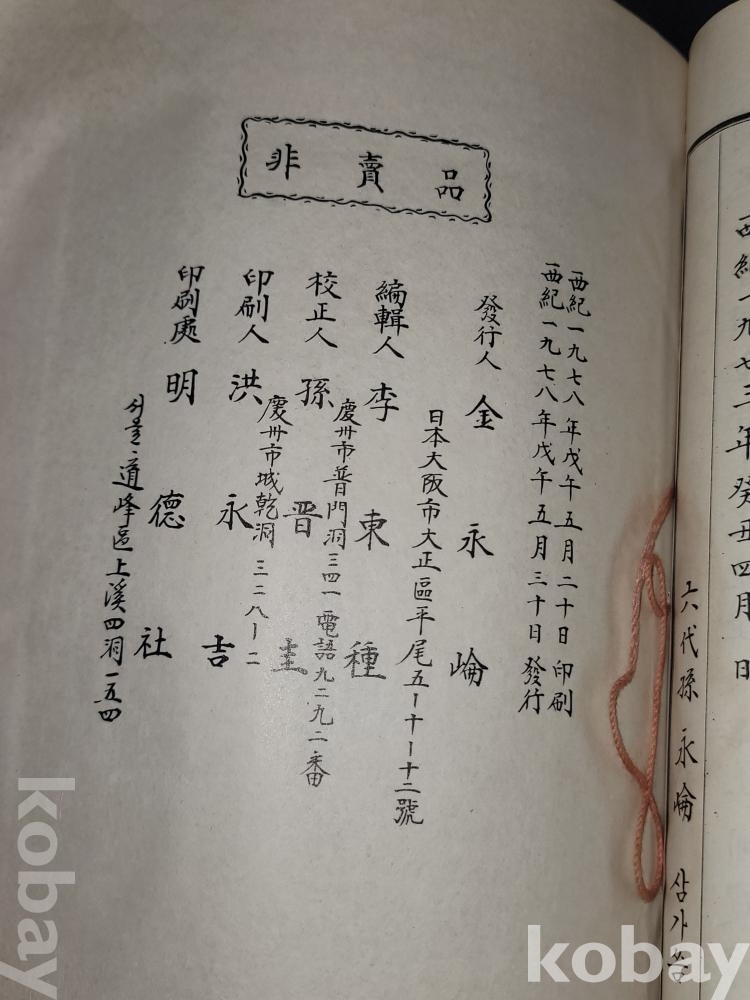 西紀一九七三年癸丑四月 日
六代孫 永崘 삼가 씀
非賣品
西紀一九七八年戊午五月二十日 印刷
西紀一九七八年戊午五月三十日 發行
發行人 金永崘
日本大阪市大正區平尾五ー十ー十二號
編輯人 李東種
慶州市普門洞三四一電話九二九二番
校正人 孫晋圭
慶州市城乾洞 三二八ー二
印刷人 洪永吉
印刷處 明德社
서울道峰區上溪四洞一五四
kobay
kobay